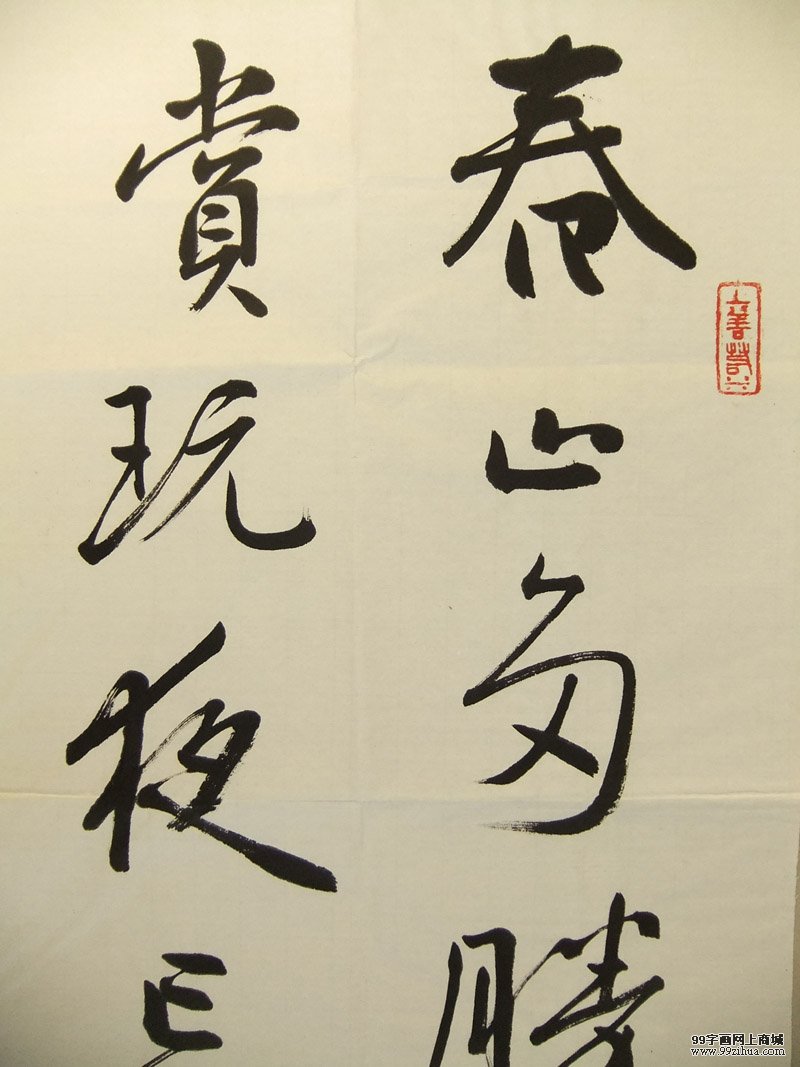 春山多勝
賞玩夜忘
上善若水
99字画网上商城
www.99zihua.com